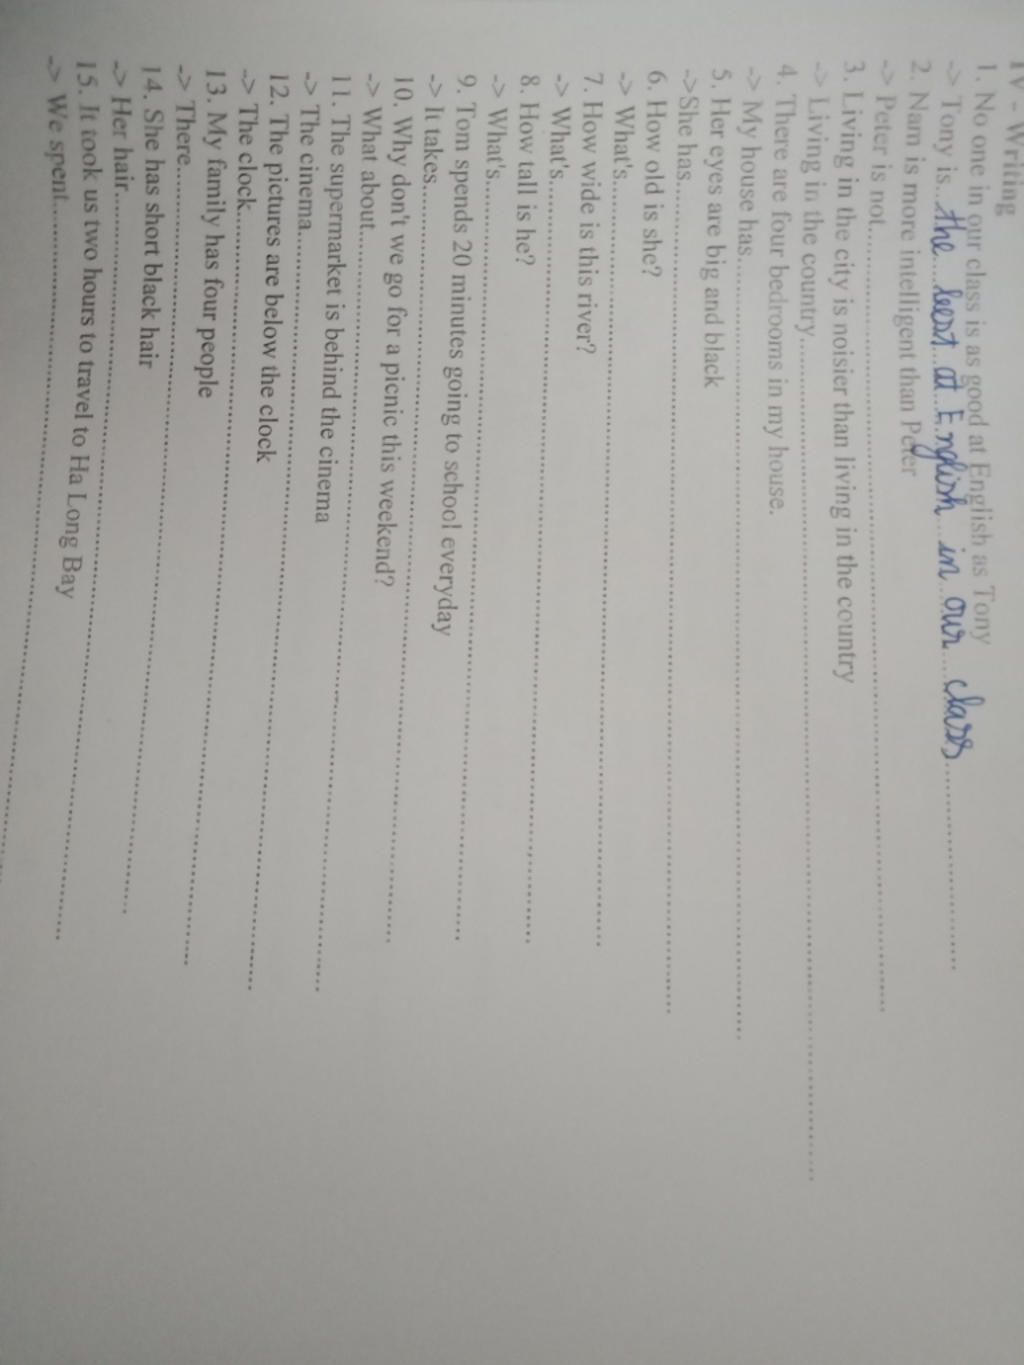 IV - Writing
1. No one in our class is as good at English as Tony
-> Tony is...the best at English in our class...........................
2. Nam is more intelligent than Peter
-> Peter is not....................................................................................
3. Living in the city is noisier than living in the country
-> Living in the country....................................................................................
4. There are four bedrooms in my house.
-> My house has....................................................................................
5. Her eyes are big and black
->She has....................................................................................
6. How old is she?
-> What's....................................................................................
7. How wide is this river?
-> What's....................................................................................
8. How tall is he?
-> What's....................................................................................
9. Tom spends 20 minutes going to school everyday
-> It takes....................................................................................
10. Why don't we go for a picnic this weekend?
-> What about....................................................................................
11. The supermarket is behind the cinema
-> The cinema....................................................................................
12. The pictures are below the clock
-> The clock....................................................................................
13. My family has four people
-> There....................................................................................
14. She has short black hair
-> Her hair....................................................................................
15. It took us two hours to travel to Ha Long Bay
-> We spent....................................................................................